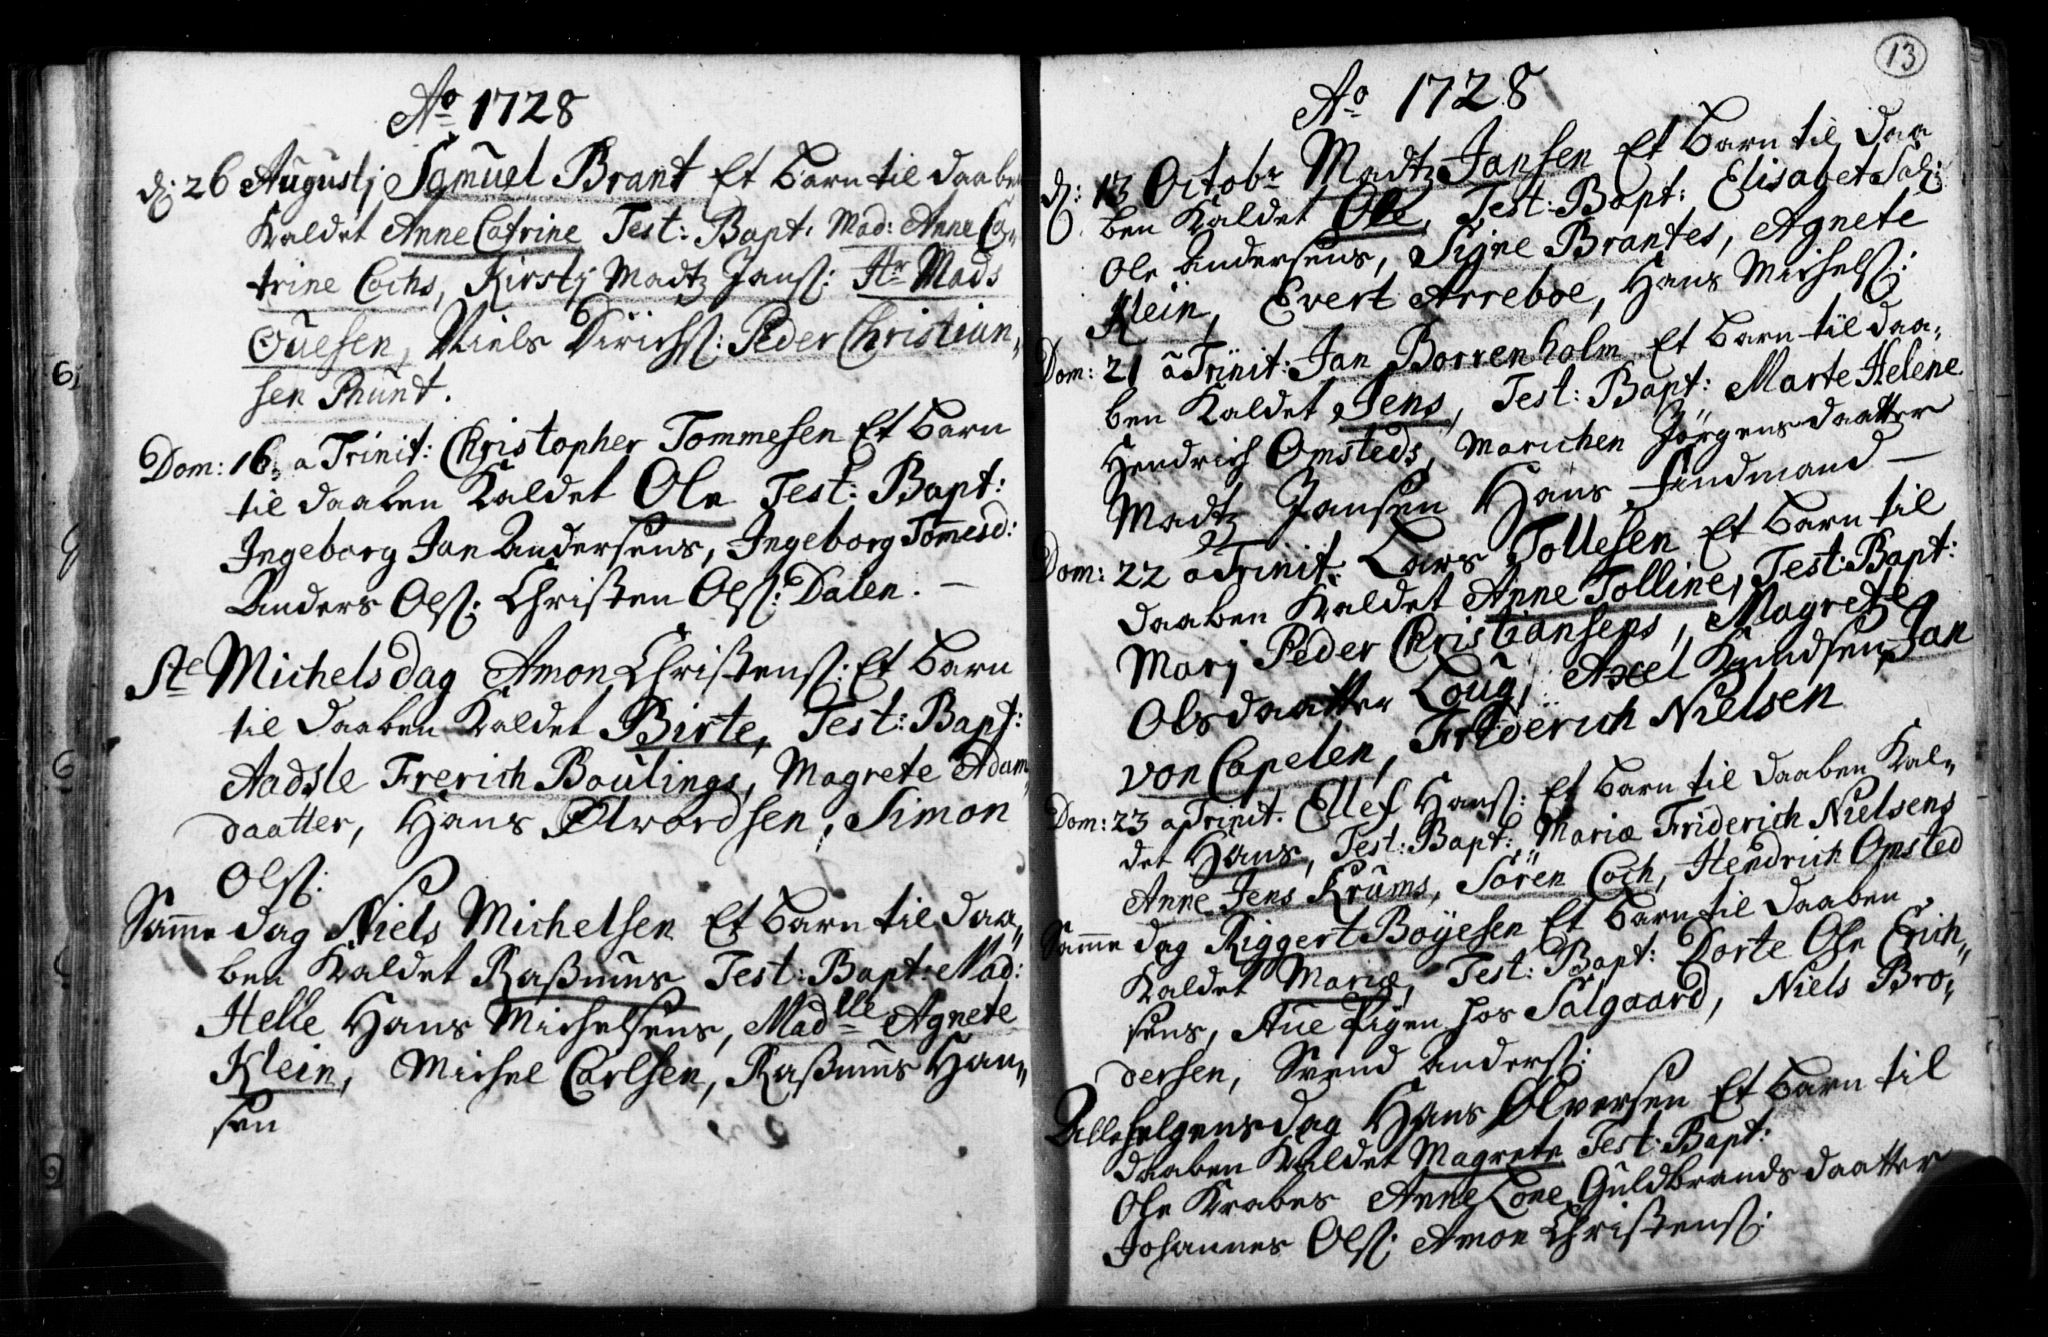 Ao 1728
d: 26 Augustj Samuel Brant Et barn til daaben
Kaldet Anne Catrine Test: Bapt: Mad: Anne Ca-
trine Cochs, Kirstj Madtz Janss: Hr Mads
Ouesen, Niels Dirichss: Peder Christian-
sen Phunt.
Dom: 16 a Trinit: Christopher Tommesen Et barn
til daaben Kaldet Ole Test: Bapt:
Ingeborg Jan Andersens, Ingeborg Tommesd:
Anders Olss: Christen Olss: Dalen. —
Ste Michelsdag Amon Christenss: Et barn
til daaben Kaldet Birte, Test: Bapt:
Aadsle Frerich Boulings, Magrete Adam-
daatter, Hans Olvordsen, Simon
Olss:
Samme dag Niels Michelsen Et barn til daa-
ben Kaldet Rasmus Test: Bapt: Mad:
Helle Hans Michelsens, Madlle Agnete
Klein, Michel Carlsen, Rasmus Han-
sen
13
Ao 1728
d: 13 Octobr Madtz Jansen Et barn til daa
ben Kaldet Ole, Test: Bapt: Elisabet Sal:
Ole Andersens, Sijne Brantes, Agnete
Klein, Evert Arreboe, Hans Michelss:
Dom: 21 a Trinit: Jan Borrenholm Et barn til daa-
ben Kaldet Jens, Test: Bapt: Marte Helene
Hendrich Omsteds, Marichen Jörgensdaatter
Madtz Jansen Hans Findmand —
Dom: 22 a Trinit: Lars Tollesen Et barn til
daaben Kaldet Anne Tolline, Test: Bapt:
Marj Peder Christiansens, Magrete
Olsdaatter Loug, Axel Knudsen, Jan
von Capelen, Friderich Nielsen
Dom: 23 a Trinit. Ellef Hanss: Et barn til daaben Kal-
det Hans, Test: Bapt: Mariæ Friderich Nielsens
Anne Jens Krums, Sören Coch, Hendrich Omsted
Samme dag Riggert Boyesen Et barn til daaben
Kaldet Mariæ, Test: Bapt: Dorte Ole Erich-
sens, Aue Pigen hos Salgaard, Niels Bro-
dersen, Svend Anderss:
Allehelgensdag Hans Olversen Et barn til
daaben Kaldet Magrete Test: Bapt:
Ole Krabes Anne Lone Guldbrandsdaatter
Johannes Olss: Amon Christenss: